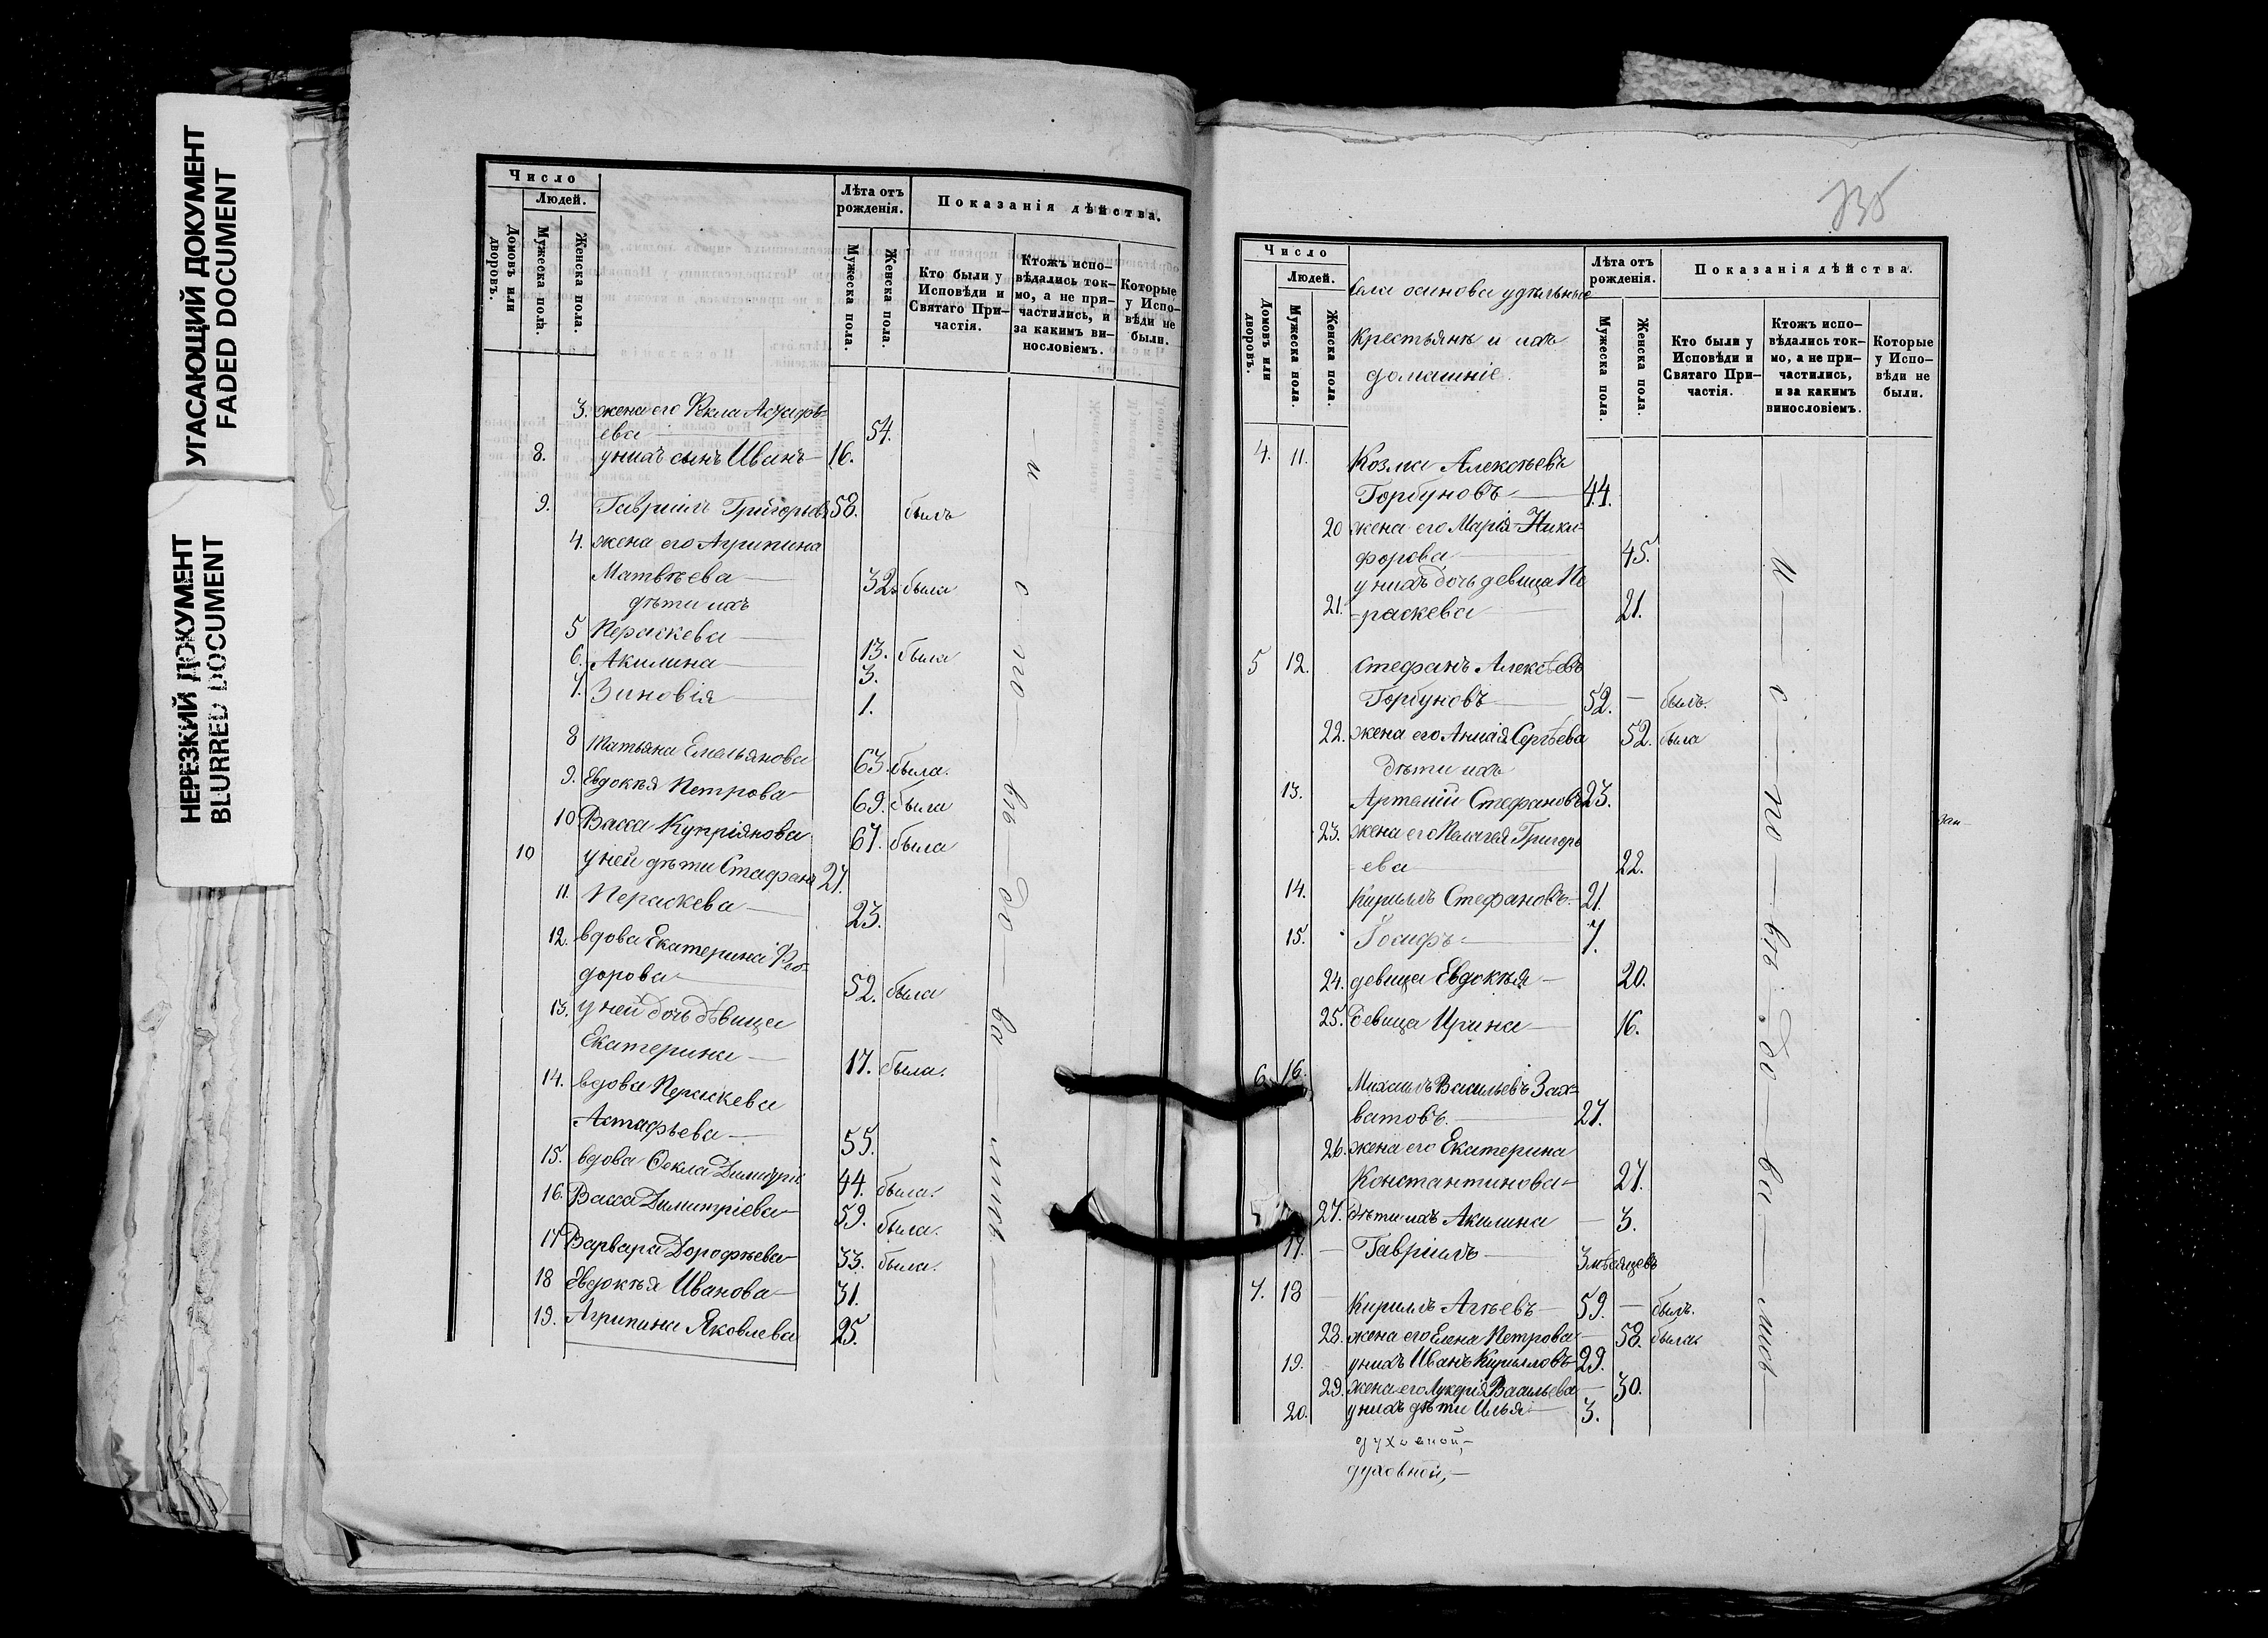 УГАСАЮЩИЙ ДОКУМЕНТ
FADED DOCUMENT
НЕРЕЗКИЙ ДОКУМЕНТ
BLURRED DOCUMENT
Число
Людей.
Домовъ или дворовъ.
Мужеска пола.
Женска пола.
Лѣта отъ рожденія.
Мужеска пола.
Женска пола.
Показанія дѣйства.
Кто были у Исповѣди и Святаго Причастія.
Ктожъ исповѣдались токмо, а не причастились, и за какимъ винословіемъ.
Которые у Исповѣди не были.
3. жена его Ѳекла
ева — 54.
8. у нихъ сынъ Иванъ — 16.
9. Гавріилъ Григорьевъ 58. былъ
4. жена его Агрипина
Матвѣева — 32. была
дѣти ихъ
5 Параскева — 13. была
6. Акилина — 3.
7. Зиновія — 1.
8 Татьяна Емельянова 63. была.
9. Евдокѣя Петрова — 69. была
10 Васса Купріянова 67. была
10 у ней дѣти Стефанъ 27.
11. Параскева — 23.
12. вдова Екатерина Фео-
дорова — 52. была
13. у ней дочь дѣвица
Екатерина — 17. была.
14. вдова Параскева
Астафьева — 55.
15. вдова Ѳекла 44. была.
16. Васса Димитріева — 59. была.
17 Варвара Дорофѣева — 33. была.
18 Евдокѣя Иванова — 31.
19. Агрипина Яковлева 25.
и — с — по — вѣ — до — ва — лись
Число
Людей.
Домовъ или дворовъ.
Мужеска пола.
Женска пола.
Села осинова удѣльные
крестьяне и ихъ
домашніе.
Лѣта отъ рожденія.
Мужеска пола.
Женска пола.
Показанія дѣйства.
Кто были у Исповѣди и Святаго Причастія.
Ктожъ исповѣдались токмо, а не причастились, и за какимъ винословіемъ.
Которые у Исповѣди не были.
4. 11. Козма Алексѣевъ
Горбуновъ — 44.
20 жена его Марія Ники-
форова — 45.
у нихъ дочь девица Па
21. -раскева — 21.
5 12. Стефанъ Алексѣевъ
Горбуновъ — 52. — былъ.
22. жена его Анисія Сергѣева 52. была
Дѣти ихъ
13. Артемій Стефановъ 23.
23. жена его Пелагея Григорь
-ева — 22.
14. Кирилъ Стефановъ — 21
15. Іосифъ — 7.
24. девица Евдокѣя — 20.
25. девица Ирина — 16.
6. 16. Михаилъ Васильевъ Зах-
ватовъ. — 27.
26. жена его Екатерина
Константинова — 27.
27. дѣти ихъ Акилина — 3.
17. — Гавріилъ — 3 мѣсяцевъ
7. 18 — Кирилъ Агѣевъ — 59. — былъ.
28. жена его Елена Петрова — 58. была.
19. у нихъ Иванъ Кириловъ — 29.
29. жена его Лукерія Васильева — 30.
20. у нихъ дѣти Илья — 3.
и — с — по — вѣ — до — ва — лись
духовной, —
духовной, —